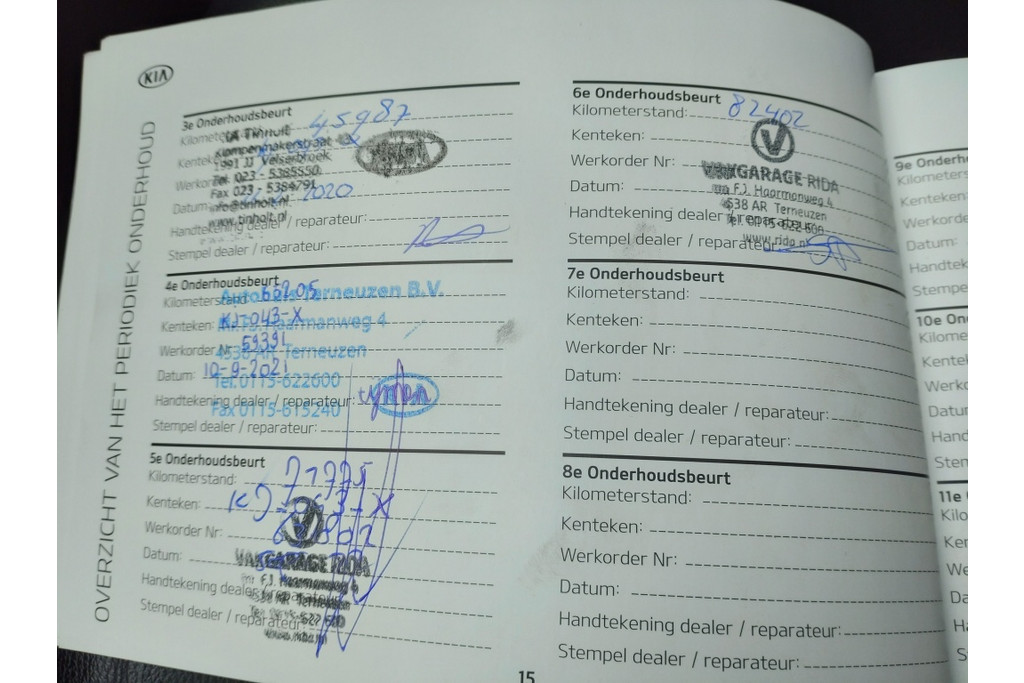 KIA
OVERZICHT VAN HET PERIODIEK ONDERHOUD
3e Onderhoudsbeurt
45987
Klompenmakerstraat
1991 JJ Velserbroek
Tel. 023 - 5385550
Fax 023 - 5384791
2020
info@tinholt.nl
www.tinholt.nl
Handtekening dealer / reparateur:
Stempel dealer / reparateur:
4e Onderhoudsbeurt
Kilometerstand:
Terneuzen B.V.
Kenteken: KJ-043-X
Haarmanweg 4
Werkorder Nr: 59391
4538 AR Terneuzen
Datum: 10-9-2021
Tel. 0115-622600
Handtekening dealer / reparateur:
Fax 0115-615240
Stempel dealer / reparateur:
5e Onderhoudsbeurt
Kilometerstand: 71775
Kenteken:
Werkorder Nr:
VAKGARAGE RIDA
Datum:
F.J. Haarmanweg 4
Handtekening dealer / reparateur:
4538 AR Terneuzen
Stempel dealer / reparateur:
6e Onderhoudsbeurt
Kilometerstand: 82402
Kenteken:
Werkorder Nr:
VAKGARAGE RIDA
Datum:
F.J. Haarmanweg 4
4538 AR Terneuzen
Handtekening dealer / reparateur:
Tel. 0115-622600
Stempel dealer / reparateur:
www.rida.nl
7e Onderhoudsbeurt
Kilometerstand:
Kenteken:
Werkorder Nr:
Datum:
Handtekening dealer / reparateur:
Stempel dealer / reparateur:
8e Onderhoudsbeurt
Kilometerstand:
Kenteken:
Werkorder Nr:
Datum:
Handtekening dealer / reparateur:
Stempel dealer / reparateur:
15
9e Onderh
Kilometers
Kenteken:
Werkorde
Datum:
Handtek
Stempe
10e On
Kilome
Kentek
Werko
Datur
Hand
Sten
11e
Kilo
Ker
We
Da
Ha
S